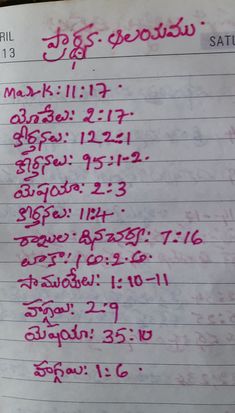 RIL
13
SATU
ప్రార్థన. ఆలయము.
Mark: 11:17.
యోవేలు: 2:17.
కీర్తనలు: 122:1
కీర్తనలు: 95:1-2.
యెషయా: 2:3
కీర్తనలు: 11:4.
రాజుల దినచర్య: 7:16
లూకా: 16:2-6.
సాముయేలు: 1:10-11
హగ్గయి: 2:9
యెషయా: 35:10
హగ్గయి: 1:6.